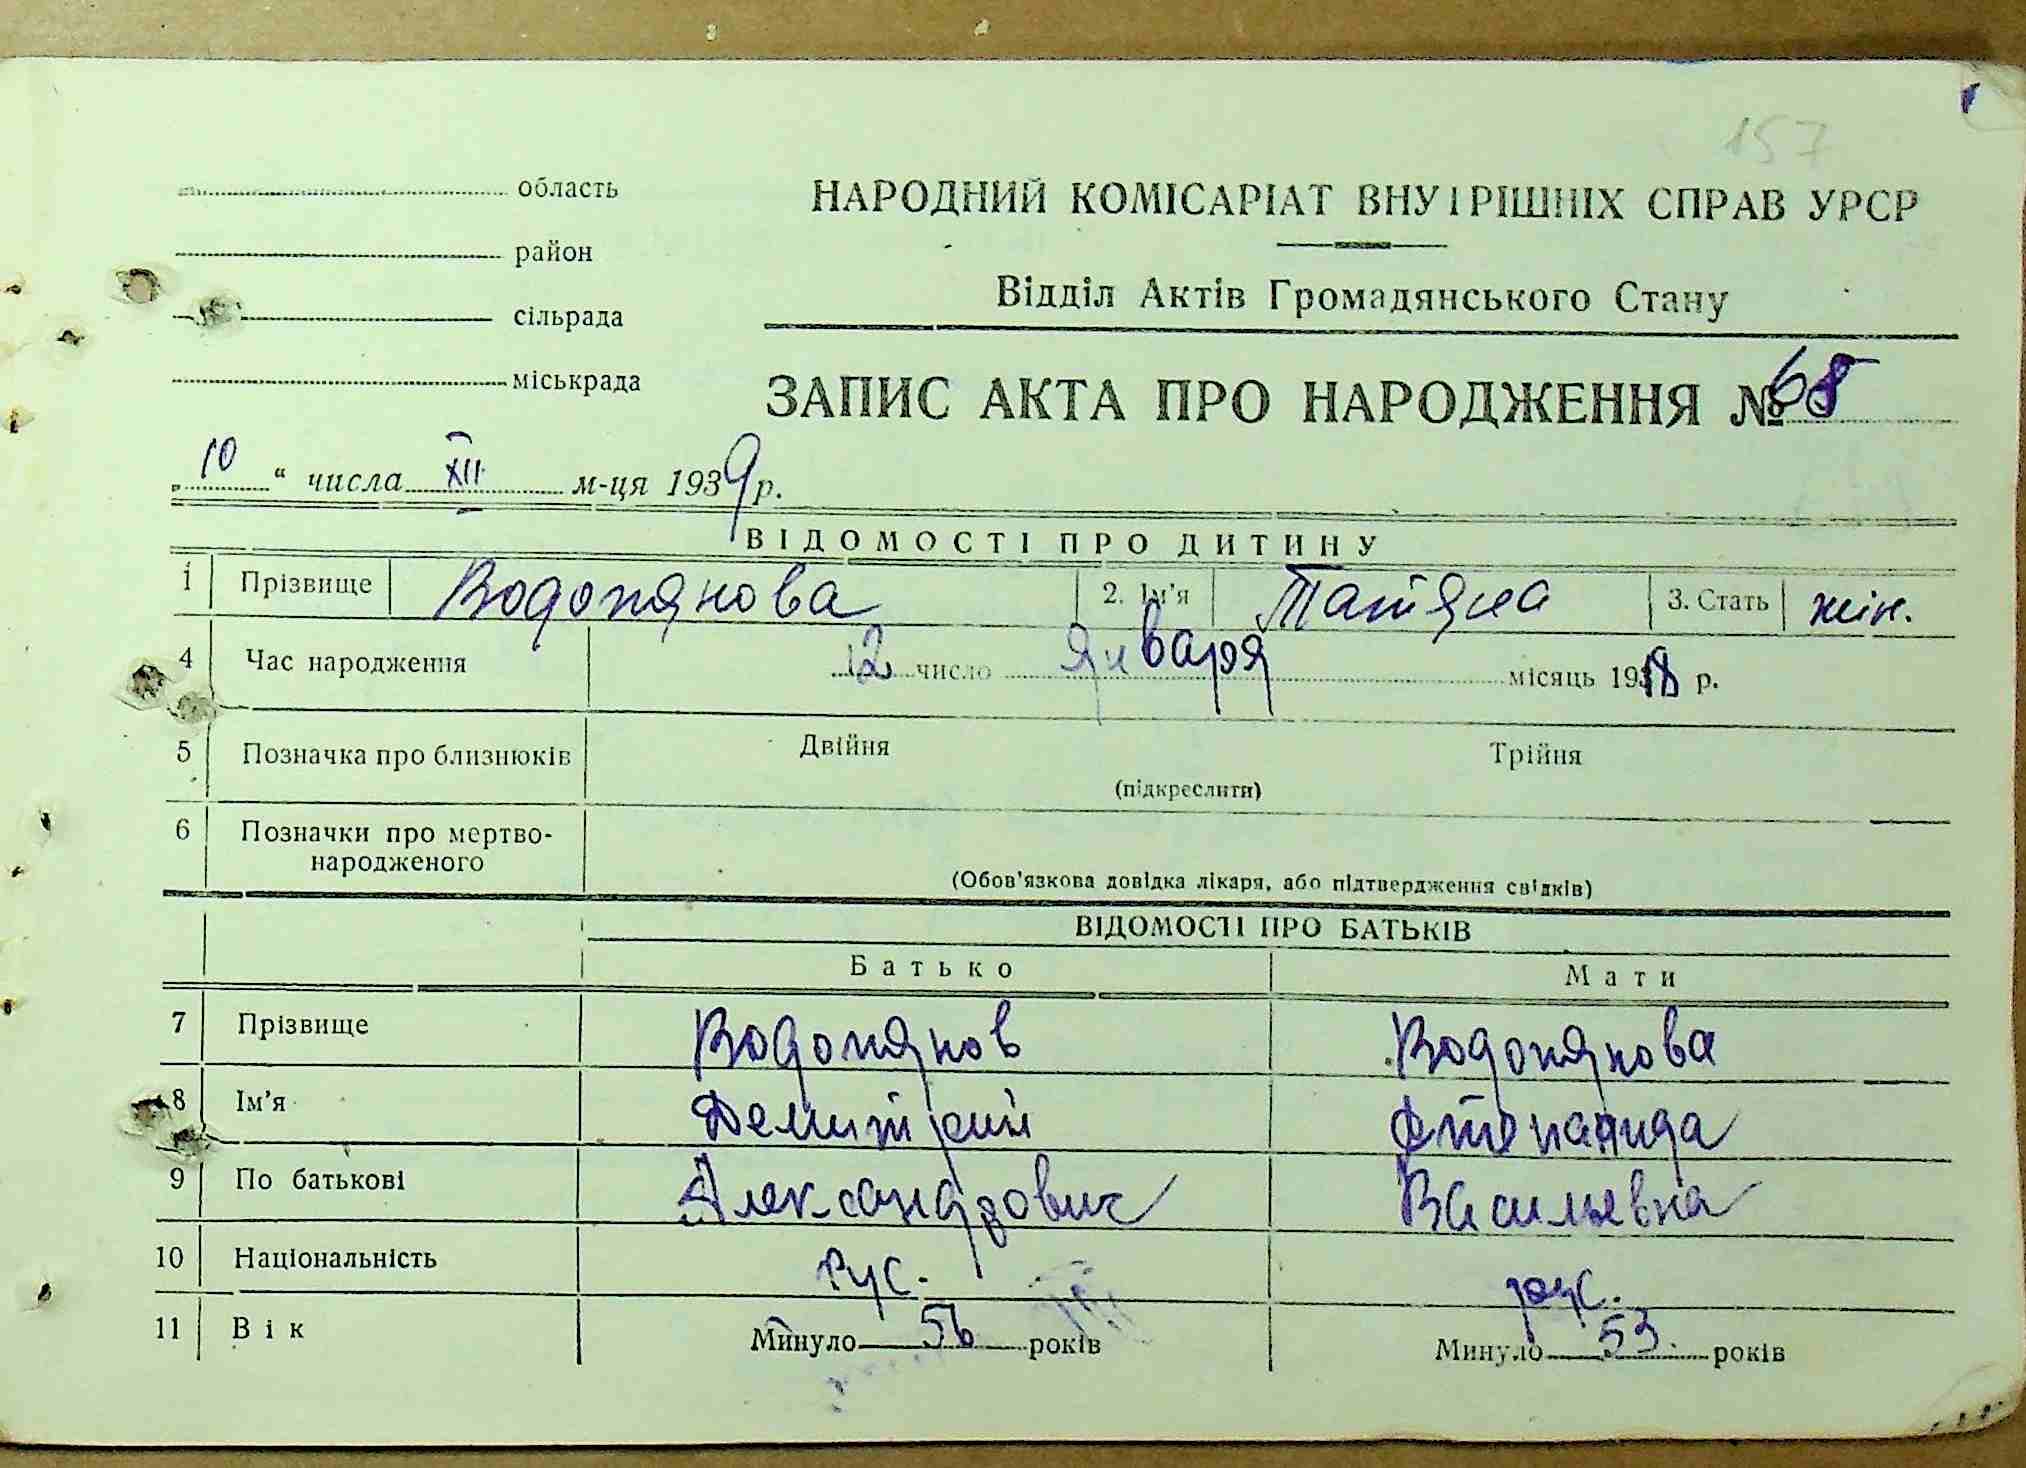 157
область
НАРОДНИЙ КОМІСАРІАТ ВНУТРІШНІХ СПРАВ УРСР
район
Відділ Актів Громадянського Стану
сільрада
міськрада
ЗАПИС АКТА ПРО НАРОДЖЕННЯ № 68
„ 10 “ числа XII м-ця 1939 р.
ВІДОМОСТІ ПРО ДИТИНУ
1 Прізвище Водопянова 2. Ім'я Татяна 3. Стать жін.
4 Час народження 12 число Января місяць 1918 р.
5 Позначка про близнюків Двійня Трійня
(підкреслити)
6 Позначки про мертво-
народженого
(Обов'язкова довідка лікаря, або підтвердження свідків)
ВІДОМОСТІ ПРО БАТЬКІВ
Батько Мати
7 Прізвище Водопянов Водопянова
8 Ім'я Демитрий Степанида
9 По батькові Александрович Васильевна
10 Національність рус. рус.
11 Вік Минуло 56 років Минуло 53 років